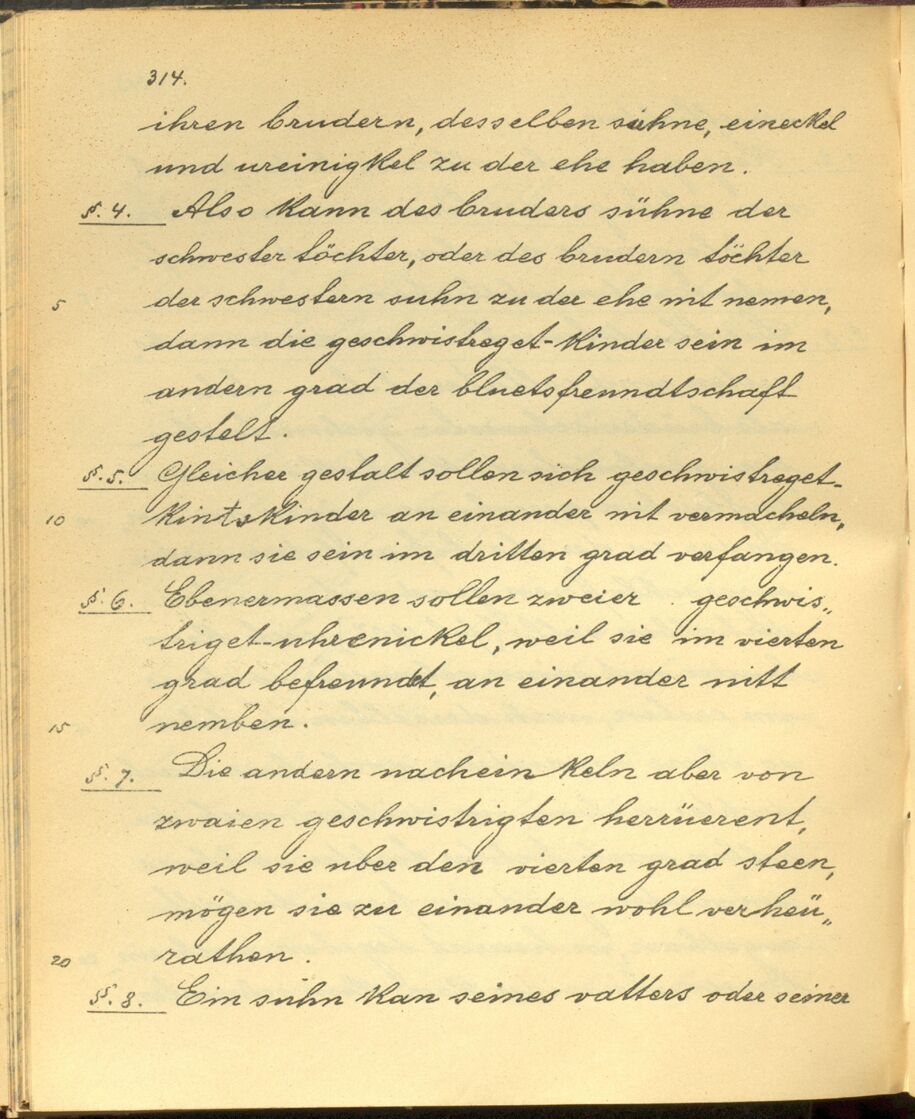 314.
ihren brudern, desselben suhne, eineckel
und ureinigkel zu der ehe haben.
§. 4. Also kann des bruders sühne der
schwester töchter, oder des brudern töchter
5 der schwestern suhn zu der ehe nit nemen,
dann die geschwistreget-kinder sein im
andern grad der bluetsfreundtschaft
gestelt.
§. 5. Gleicher gestalt sollen sich geschwistreget-
10 kintskinder an einander nit vermacheln,
dann sie sein im dritten grad verfangen.
§. 6. Ebenermassen sollen zweier geschwis„
triget-uhrenickel, weil sie im vierten
grad befreundt, an einander nitt
15 nemben.
§. 7. Die andern nacheinkeln aber von
zwaien geschwistrigten herrüerent,
weil sie uber den vierten grad steen,
mögen sie zu einander wohl verheü„
20 rathen.
§. 8. Ein suhn kan seines vatters oder seiner